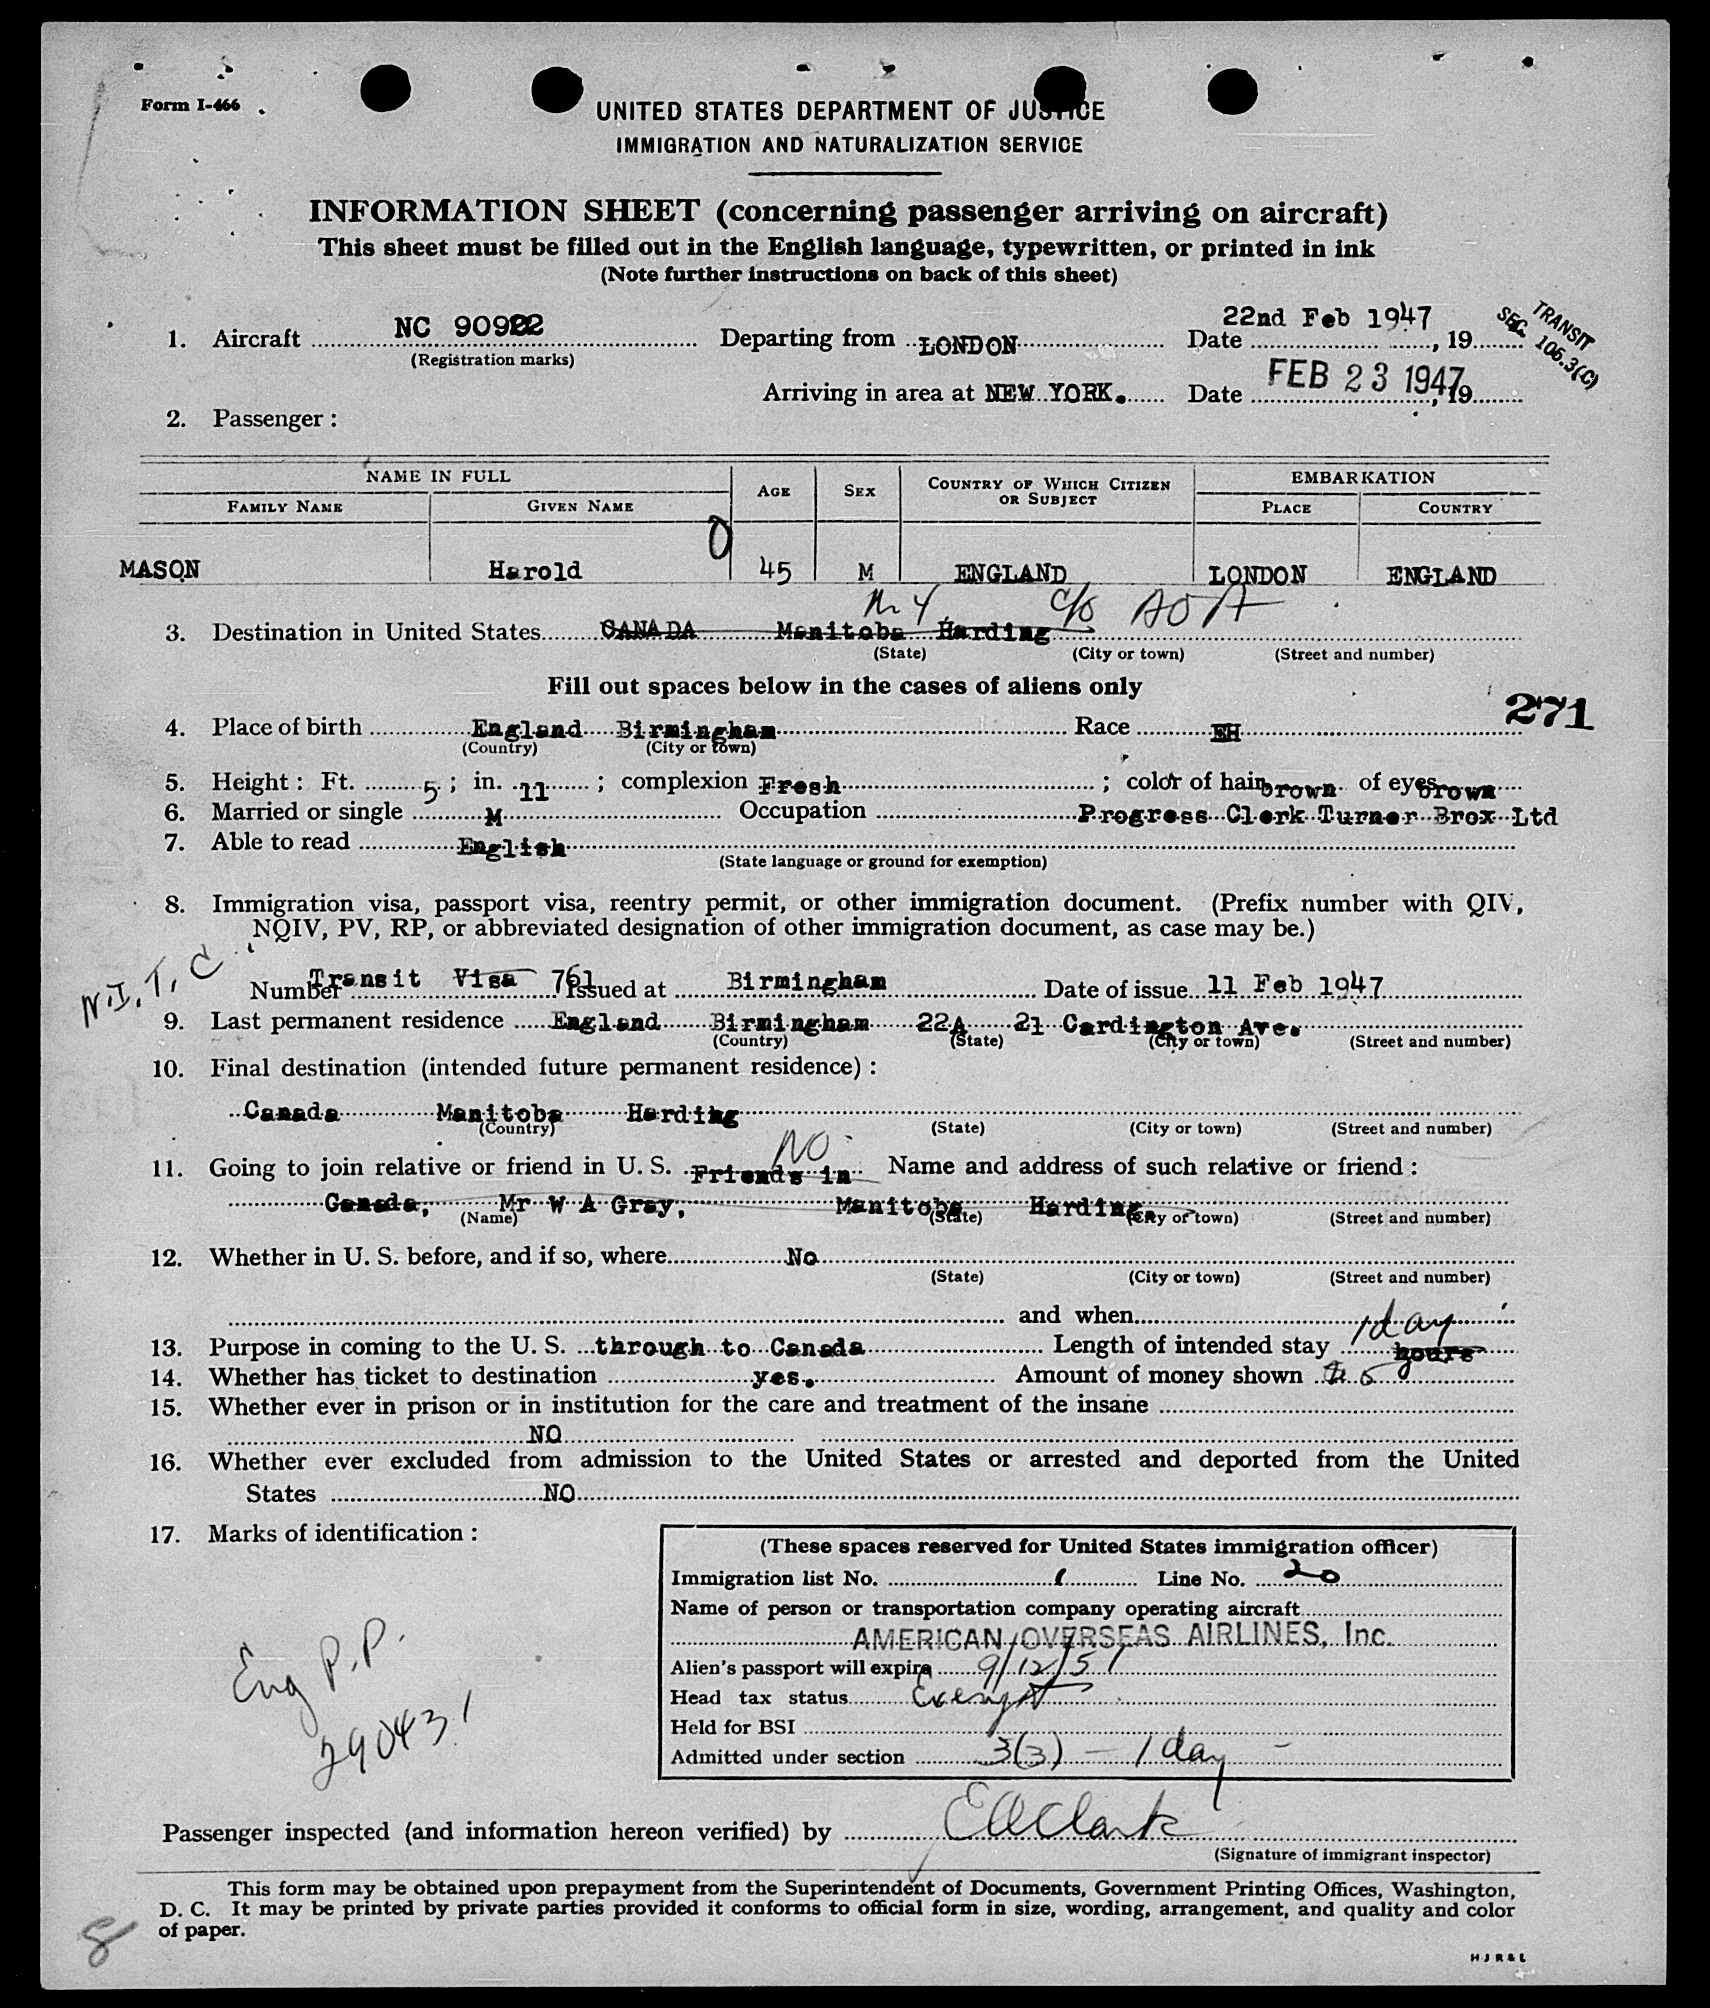 Form I-466
UNITED STATES DEPARTMENT OF JUSTICE
IMMIGRATION AND NATURALIZATION SERVICE
INFORMATION SHEET (concerning passenger arriving on aircraft)
This sheet must be filled out in the English language, typewritten, or printed in ink
(Note further instructions on back of this sheet)
TRANSIT
SEC. 106.3(C)
1. Aircraft NC 90922 Departing from LONDON Date 22nd Feb 1947, 19
(Registration marks)
Arriving in area at NEW YORK. Date FEB 23 1947, 19
2. Passenger :
NAME IN FULL AGE SEX COUNTRY OF WHICH CITIZEN OR SUBJECT EMBARKATION
FAMILY NAME GIVEN NAME PLACE COUNTRY
0
MASON Harold 45 M ENGLAND LONDON ENGLAND
N Y c/o AOA
3. Destination in United States CANADA Manitoba Harding
(State) (City or town) (Street and number)
Fill out spaces below in the cases of aliens only
271
4. Place of birth England Birmingham Race EH
(Country) (City or town)
5. Height : Ft. 5 ; in. 11 ; complexion Fresh ; color of hair brown of eyes brown
6. Married or single M Occupation Progress Clerk Turner Brox Ltd
7. Able to read English
(State language or ground for exemption)
8. Immigration visa, passport visa, reentry permit, or other immigration document. (Prefix number with QIV,
NQIV, PV, RP, or abbreviated designation of other immigration document, as case may be.)
N.I.T.C
Number Transit Visa 761 Issued at Birmingham Date of issue 11 Feb 1947
9. Last permanent residence England Birmingham 22A 21 Cardington Ave.
(Country) (State) (City or town) (Street and number)
10. Final destination (intended future permanent residence) :
Canada Manitoba Harding
(Country) (State) (City or town) (Street and number)
NO
11. Going to join relative or friend in U. S. Friends in Name and address of such relative or friend :
Canada, Mr W A Gray, Manitoba Harding
(Name) (State) (City or town) (Street and number)
12. Whether in U. S. before, and if so, where No
(State) (City or town) (Street and number)
and when
13. Purpose in coming to the U. S. through to Canada Length of intended stay 1 day hours
14. Whether has ticket to destination yes. Amount of money shown $5
15. Whether ever in prison or in institution for the care and treatment of the insane
NO
16. Whether ever excluded from admission to the United States or arrested and deported from the United
States NO
17. Marks of identification :
Eng P.P.
290431
(These spaces reserved for United States immigration officer)
Immigration list No. 1 Line No. 20
Name of person or transportation company operating aircraft
AMERICAN OVERSEAS AIRLINES, Inc.
Alien's passport will expire 9/12/51
Head tax status Exempt
Held for BSI
Admitted under section 3(3) - 1 day -
Passenger inspected (and information hereon verified) by EAClark
(Signature of immigrant inspector)
This form may be obtained upon prepayment from the Superintendent of Documents, Government Printing Offices, Washington,
D. C. It may be printed by private parties provided it conforms to official form in size, wording, arrangement, and quality and color
of paper.
8
H J R & L